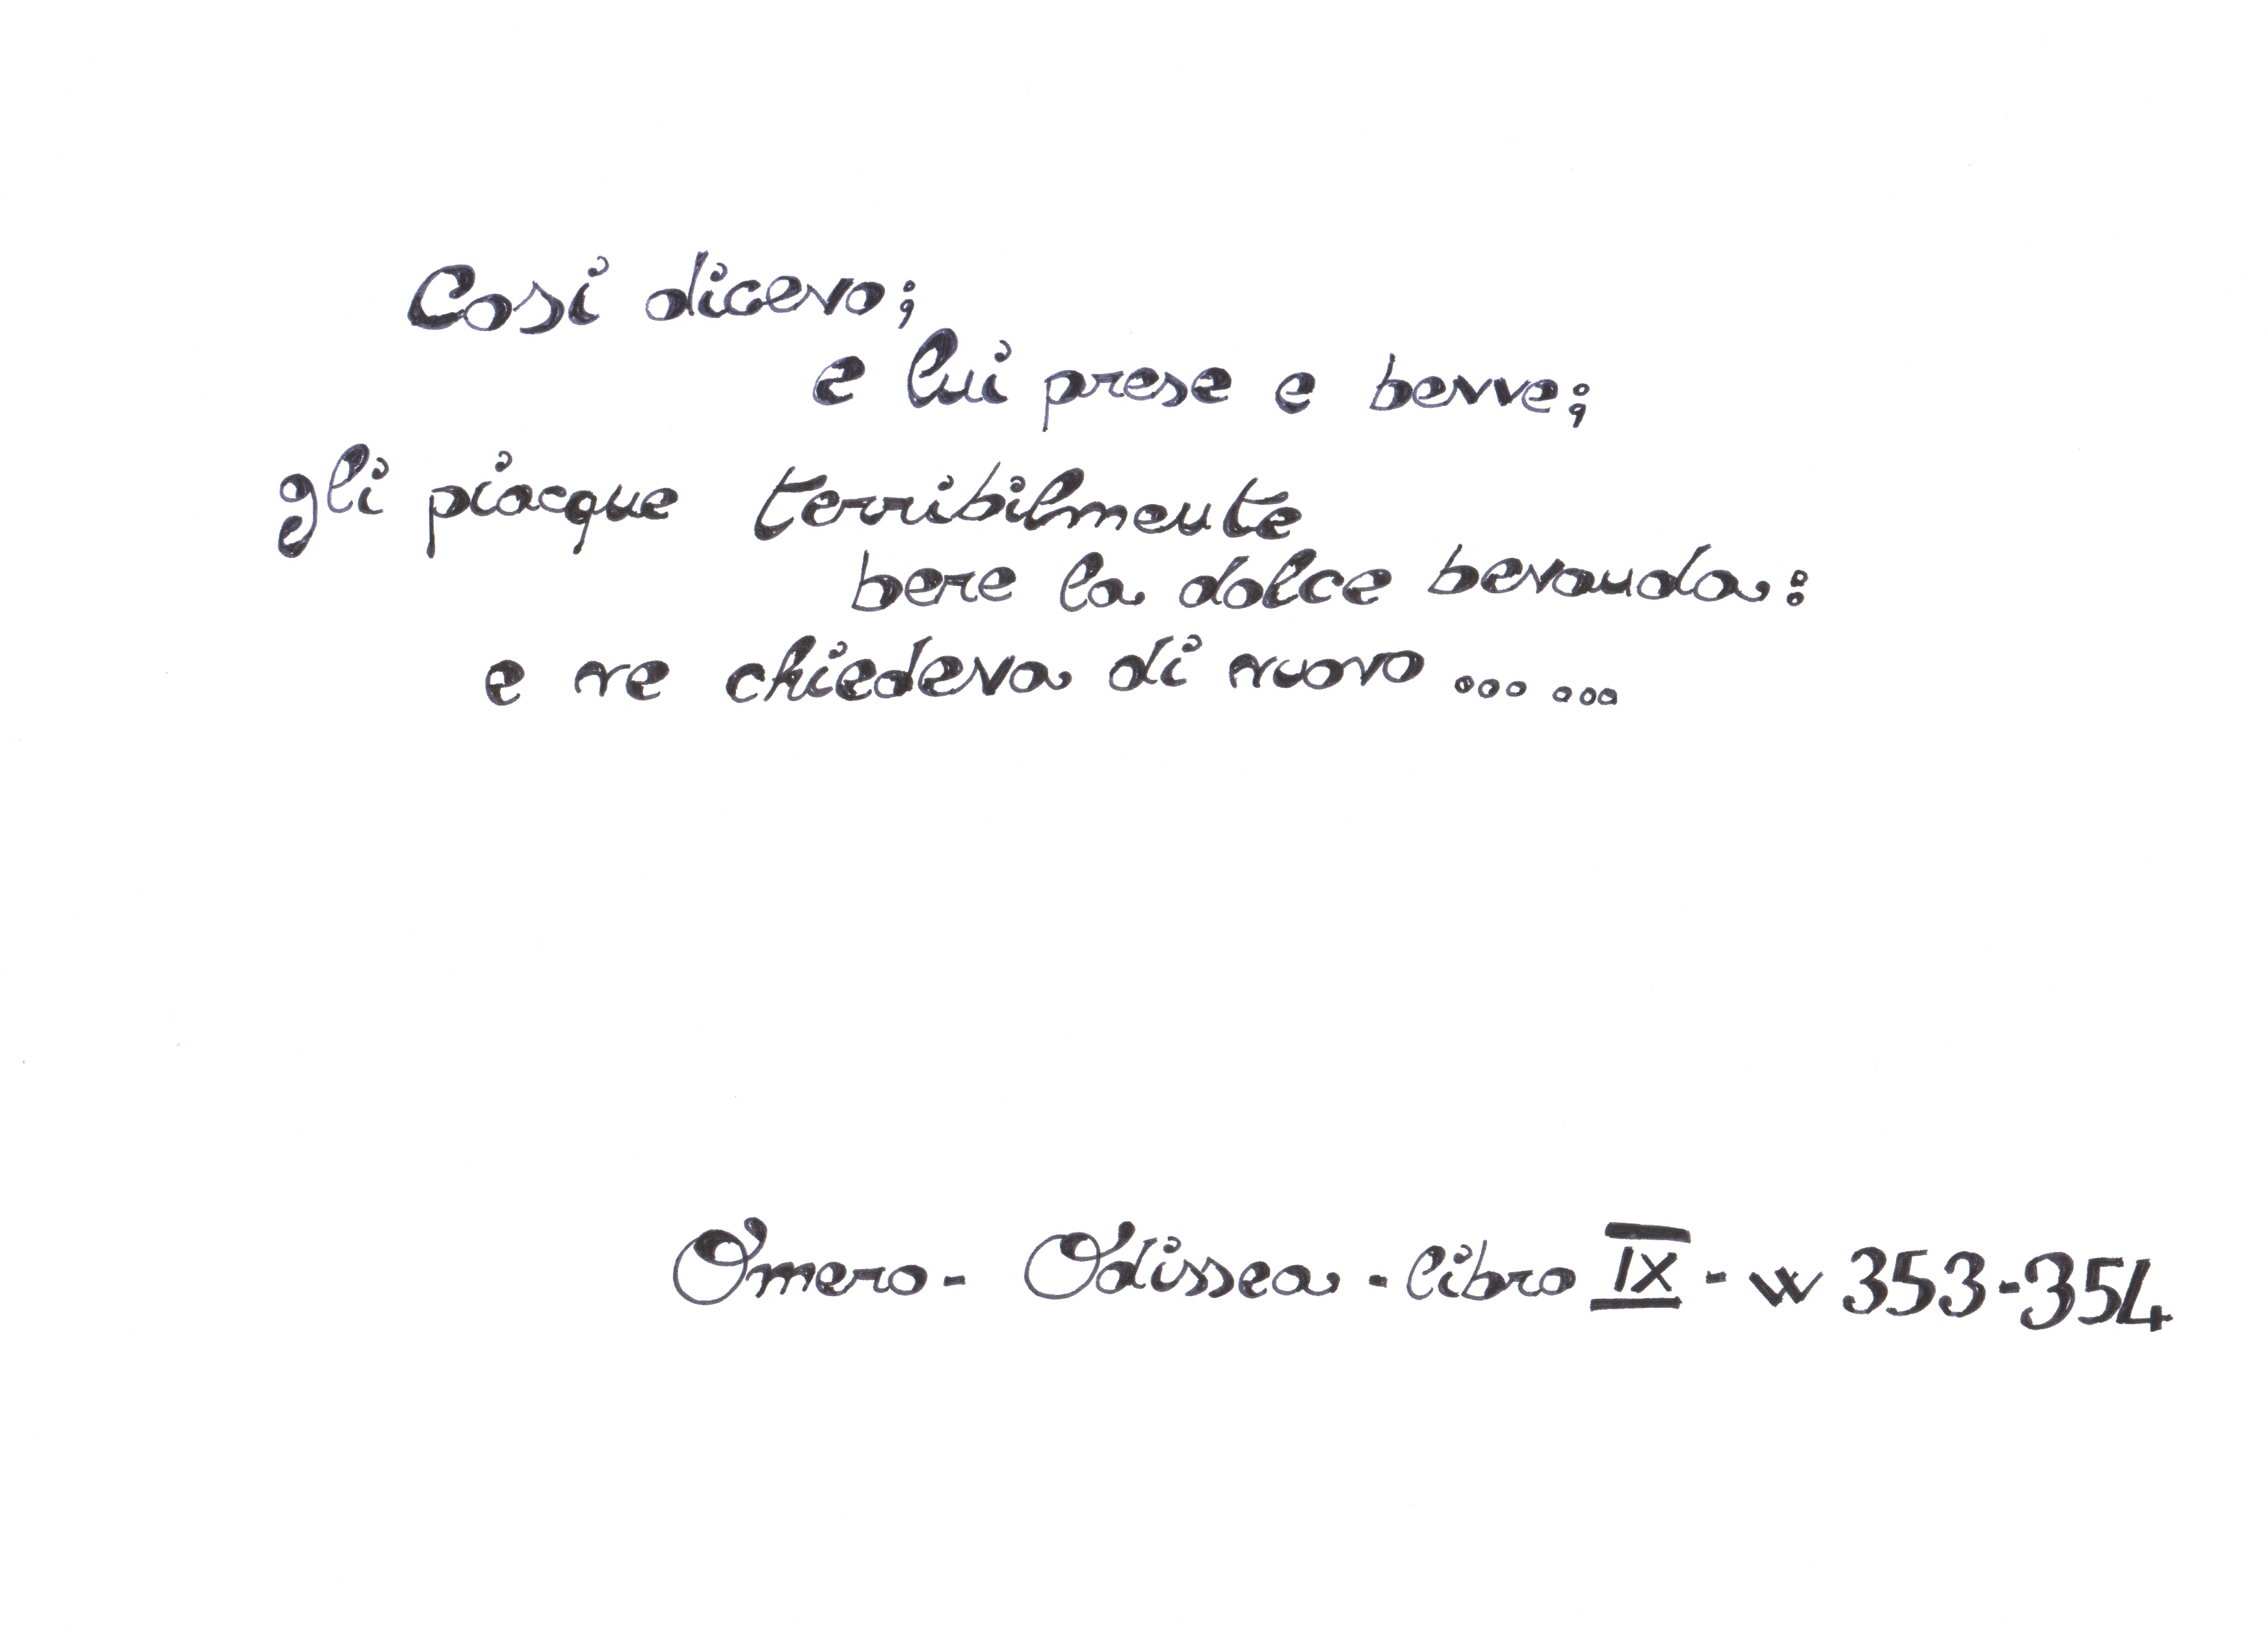 Così dicevo;
e lui prese e bevve;
gli piacque terribilmente
bere la dolce bevanda:
e ne chiedeva di nuovo ... ...
Omero - Odissea - libro IX - vv 353-354